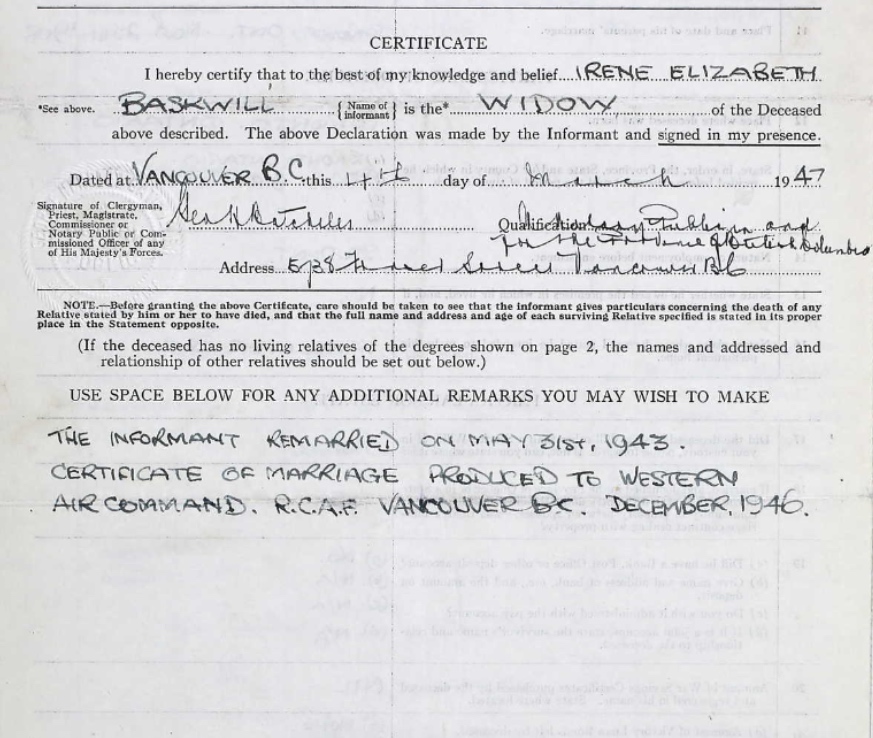 CERTIFICATE
I hereby certify that to the best of my knowledge and belief IRENE ELIZABETH
*See above. BASKWILL { Name of informant } is the* WIDOW of the Deceased
above described. The above Declaration was made by the Informant and signed in my presence.
Dated at VANCOUVER B.C. this 14th day of March 1947
Signature of Clergyman,
Priest, Magistrate,
Commissioner or
Notary Public or Com-
missioned Officer of any
of His Majesty's Forces.
Qualification Notary Public in and
for the Province of British Columbia
Address Vancouver BC
NOTE.—Before granting the above Certificate, care should be taken to see that the informant gives particulars concerning the death of any
Relative stated by him or her to have died, and that the full name and address and age of each surviving Relative specified is stated in its proper
place in the Statement opposite.
(If the deceased has no living relatives of the degrees shown on page 2, the names and addressed and
relationship of other relatives should be set out below.)
USE SPACE BELOW FOR ANY ADDITIONAL REMARKS YOU MAY WISH TO MAKE
THE INFORMANT REMARRIED ON MAY 31st, 1943.
CERTIFICATE OF MARRIAGE PRODUCED TO WESTERN
AIR COMMAND. R.C.A.F. VANCOUVER B.C. DECEMBER, 1946.